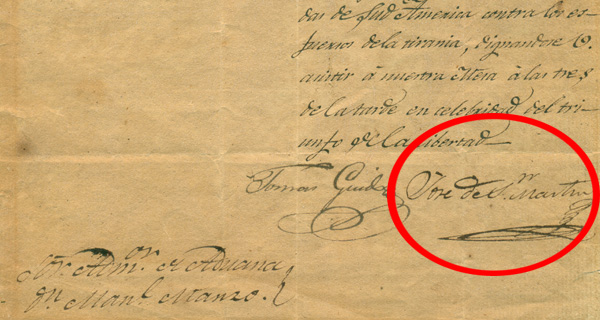 das de Sud America contra los es-
fuerzos de la tirania, dignandose V.
asistir à nuestra Mesa à las tres
de la tarde en celebridad del tri-
unfo de la libertad
Tomas Guido Jose de Sn. Martin
Sor. Admor. de Aduana
Dn. Manl. Manzo.